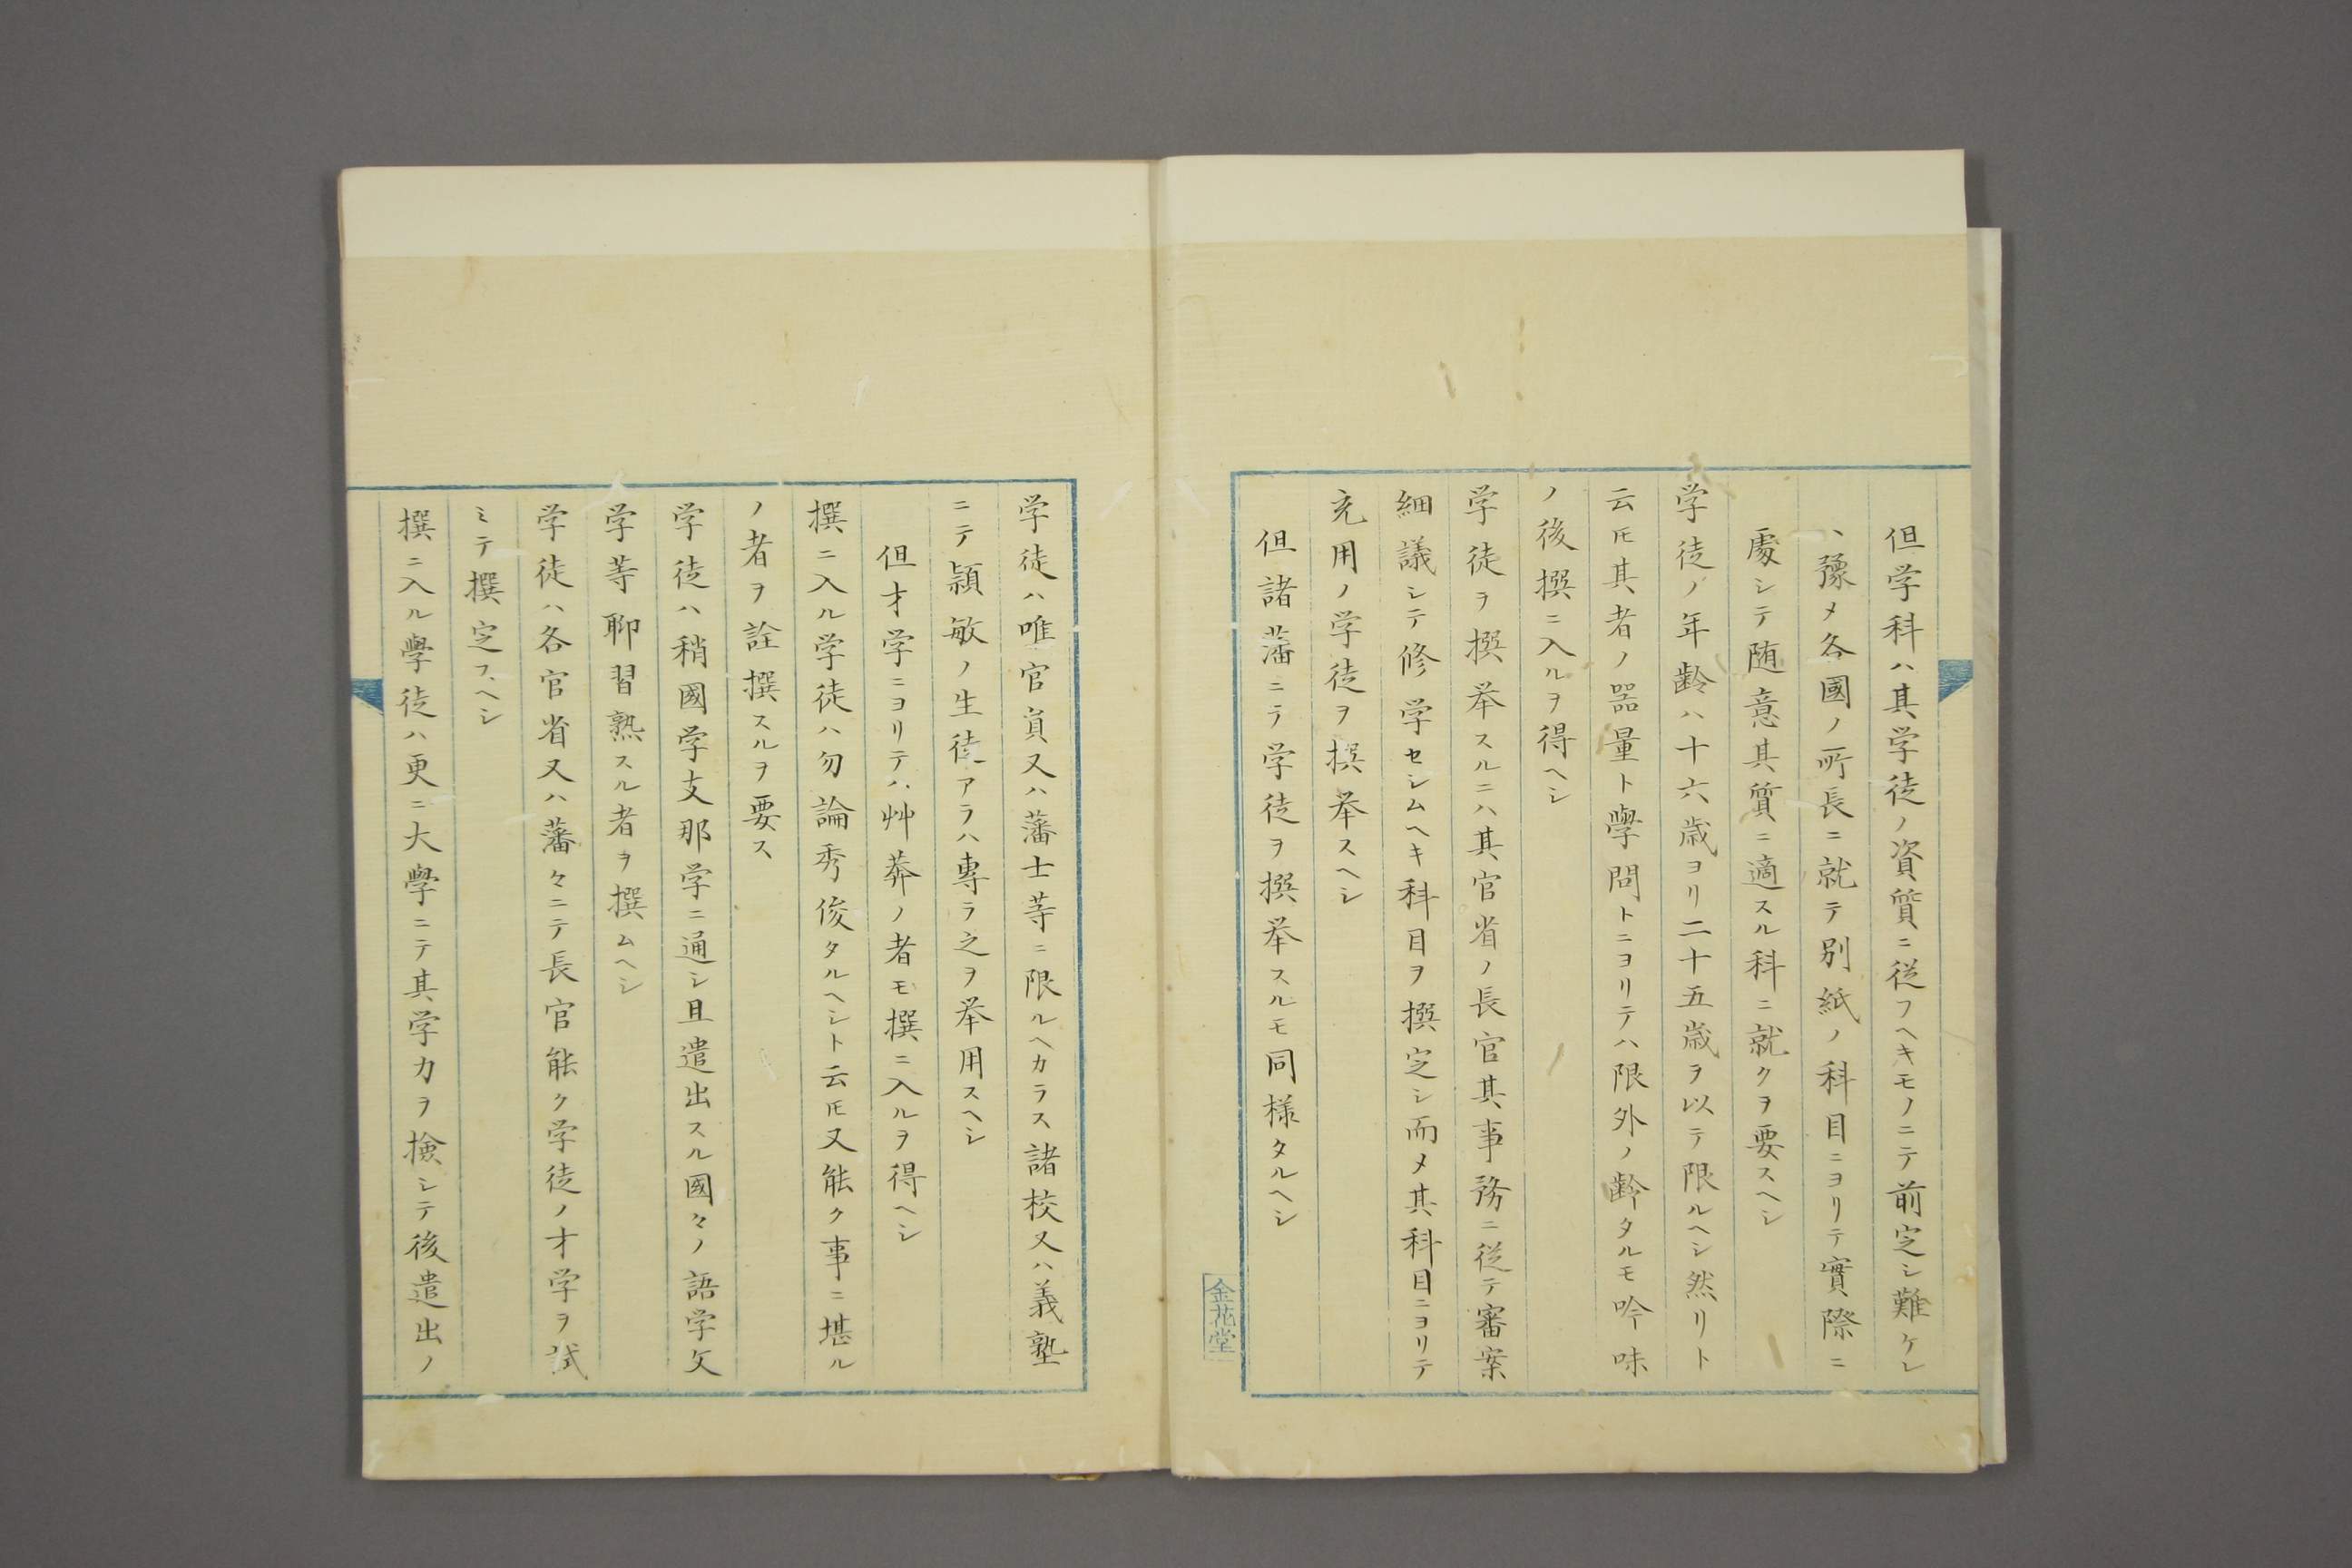 但学科ハ其学徒ノ資質ニ従フヘキモノニテ前定シ難ケレ
ハ豫メ各國ノ所長ニ就テ別紙ノ科目ニヨリテ實際ニ
處シテ随意其質ニ適スル科ニ就クヲ要スヘシ
学徒ノ年齢ハ十六歳ヨリ二十五歳ヲ以テ限ルヘシ然リト
云𪜈其者ノ器量ト學問トニヨリテハ限外ノ齢タルモ吟味
ノ後撰ニ入ルヲ得ヘシ
学徒ヲ撰挙スルニハ其官省ノ長官其事務ニ従テ審案
細議シテ修学セシムヘキ科目ヲ撰定シ而メ其科目ニヨリテ
充用ノ学徒ヲ撰挙スヘシ
但諸藩ニテ学徒ヲ撰挙スルモ同様タルヘシ
金花堂
学徒ハ唯官員又ハ藩士等ニ限ルヘカラス諸校又ハ義塾
ニテ頴敏ノ生徒アラハ専ラ之ヲ挙用スヘシ
但才学ニヨリテハ艸莽ノ者モ撰ニ入ルヲ得ヘシ
撰ニ入ル学徒ハ勿論秀俊タルヘシト云𪜈又能ク事ニ堪ル
ノ者ヲ詮撰スルヲ要ス
学徒ハ稍國学支那学ニ通シ且遣出スル國々ノ語学文
学等聊習熟スル者ヲ撰ムヘシ
学徒ハ各官省又ハ藩々ニテ長官能ク学徒ノ才学ヲ試
ミテ撰定フヘシ
撰ニ入ル學徒ハ更ニ大學ニテ其学力ヲ撿シテ後遣出ノ